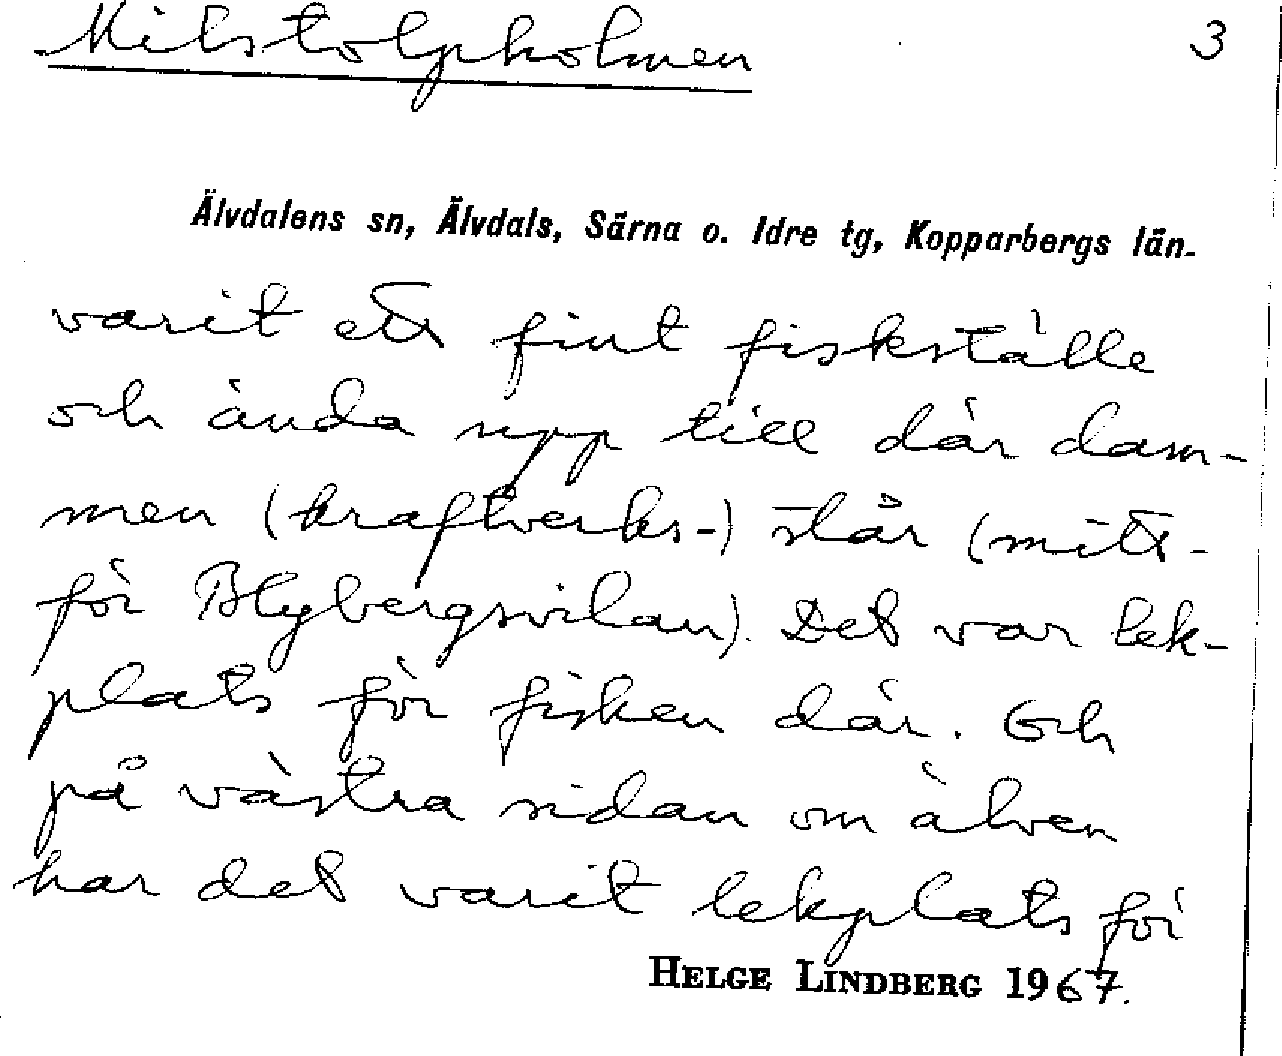 Milstolpholmen 3
Älvdalens sn, Älvdals, Särna o. Idre tg, Kopparbergs län.
varit ett fint fiskställe
och ända upp till där dam-
men (kraftverks-) står (mitt-
för Blybergsvilan). Det var lek-
plats för fisken där. Och
på västra sidan om älven
har det varit lekplats för
HELGE LINDBERG 1967.